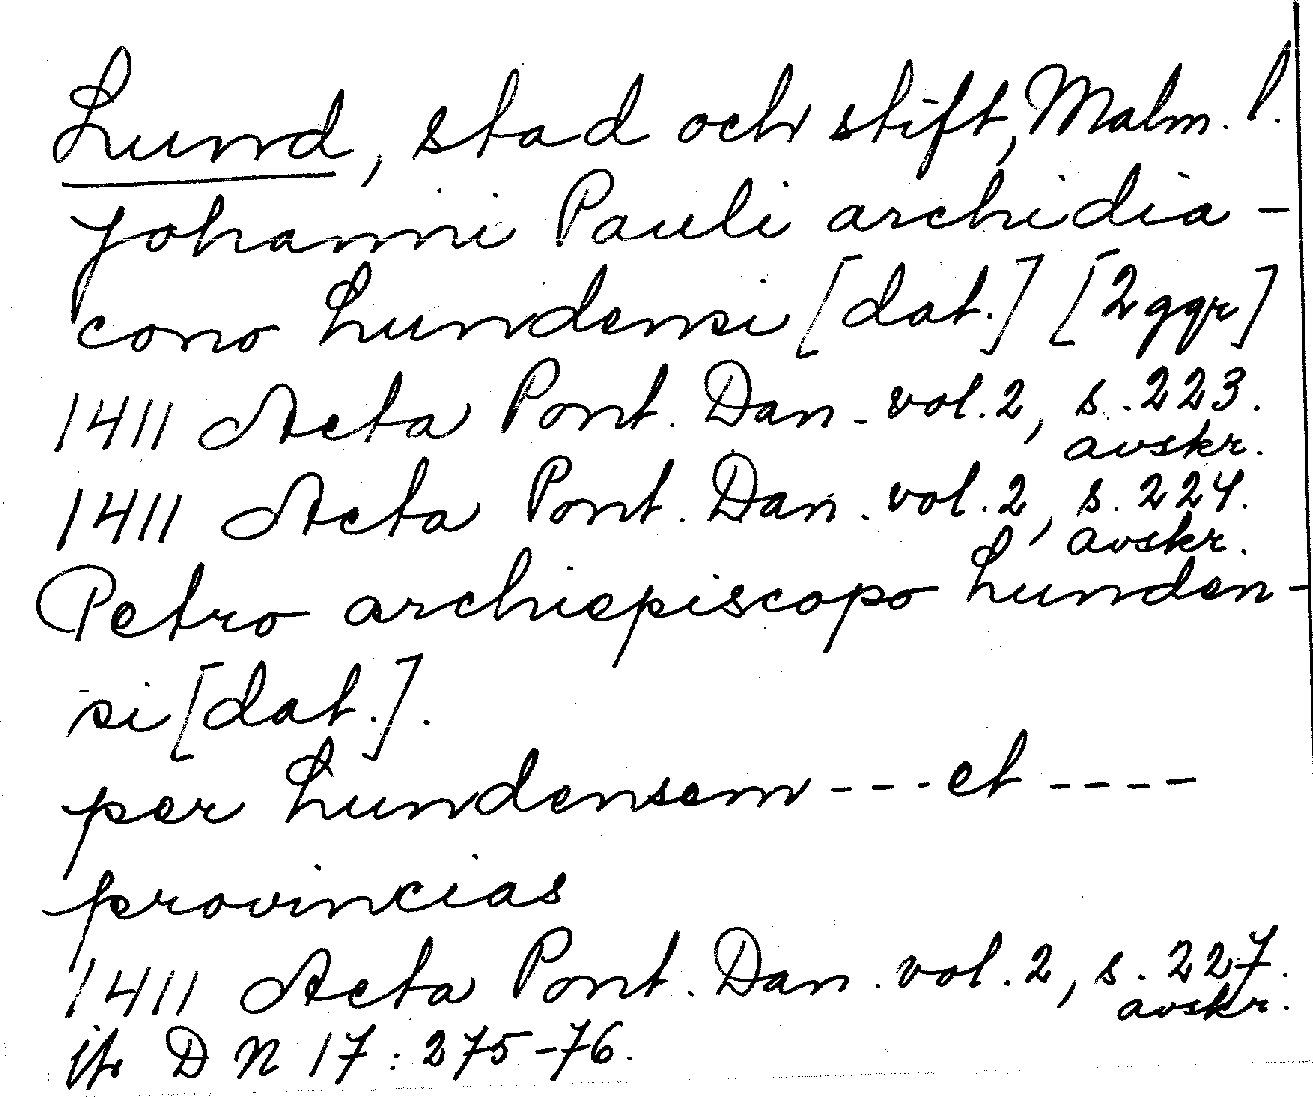 Lund, stad och stift, Malm. l.
Johanni Pauli archidia-
cono Lundensi [dat.] [2 ggr]
1411 Acta Pont. Dan. vol. 2, s. 223.
avskr.
1411 Acta Pont. Dan. vol. 2, s. 224.
avskr.
Petro archiepiscopo Lunden-
si [dat.].
per Lundensem --- et ----
provincias
1411 Acta Pont. Dan. vol. 2, s. 227.
avskr.
jfr D N 17: 275-76.